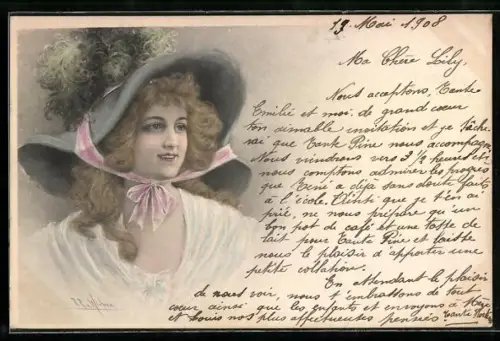 19. Mai 1908
Ma Chère Lily,
Nous acceptons, Tante
Emilie et moi, de grand cœur
ton aimable invitation et je tâche-
rai que Tante Line nous accompagne
Nous viendrons vers 3 1/2 heures et
nous comptons admirer les progrès
que René a déjà sans doute faits
à l'école. Ainsi que je t'en ai
prié, ne nous prépare qu'un
bon pot de café et une tasse de
lait pour Tante Line et laisse
nous le plaisir d'apporter une
petite collation.
En attendant le plaisir
de nous voir, nous t'embrassons de tout
cœur ainsi que les enfants et envoyons à
et Louis nos plus affectueuses pensées. Tante